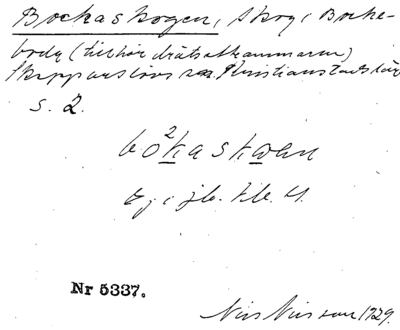 Bockaskogen, skog i Bocke-
boda (tillhör drätselkammaren)
Skepparslövs sn. Kristianstads län
s. 2.
bo²kaskoen
Ej i jb. 
Nr 5337.
Nils Nilsson 1929.